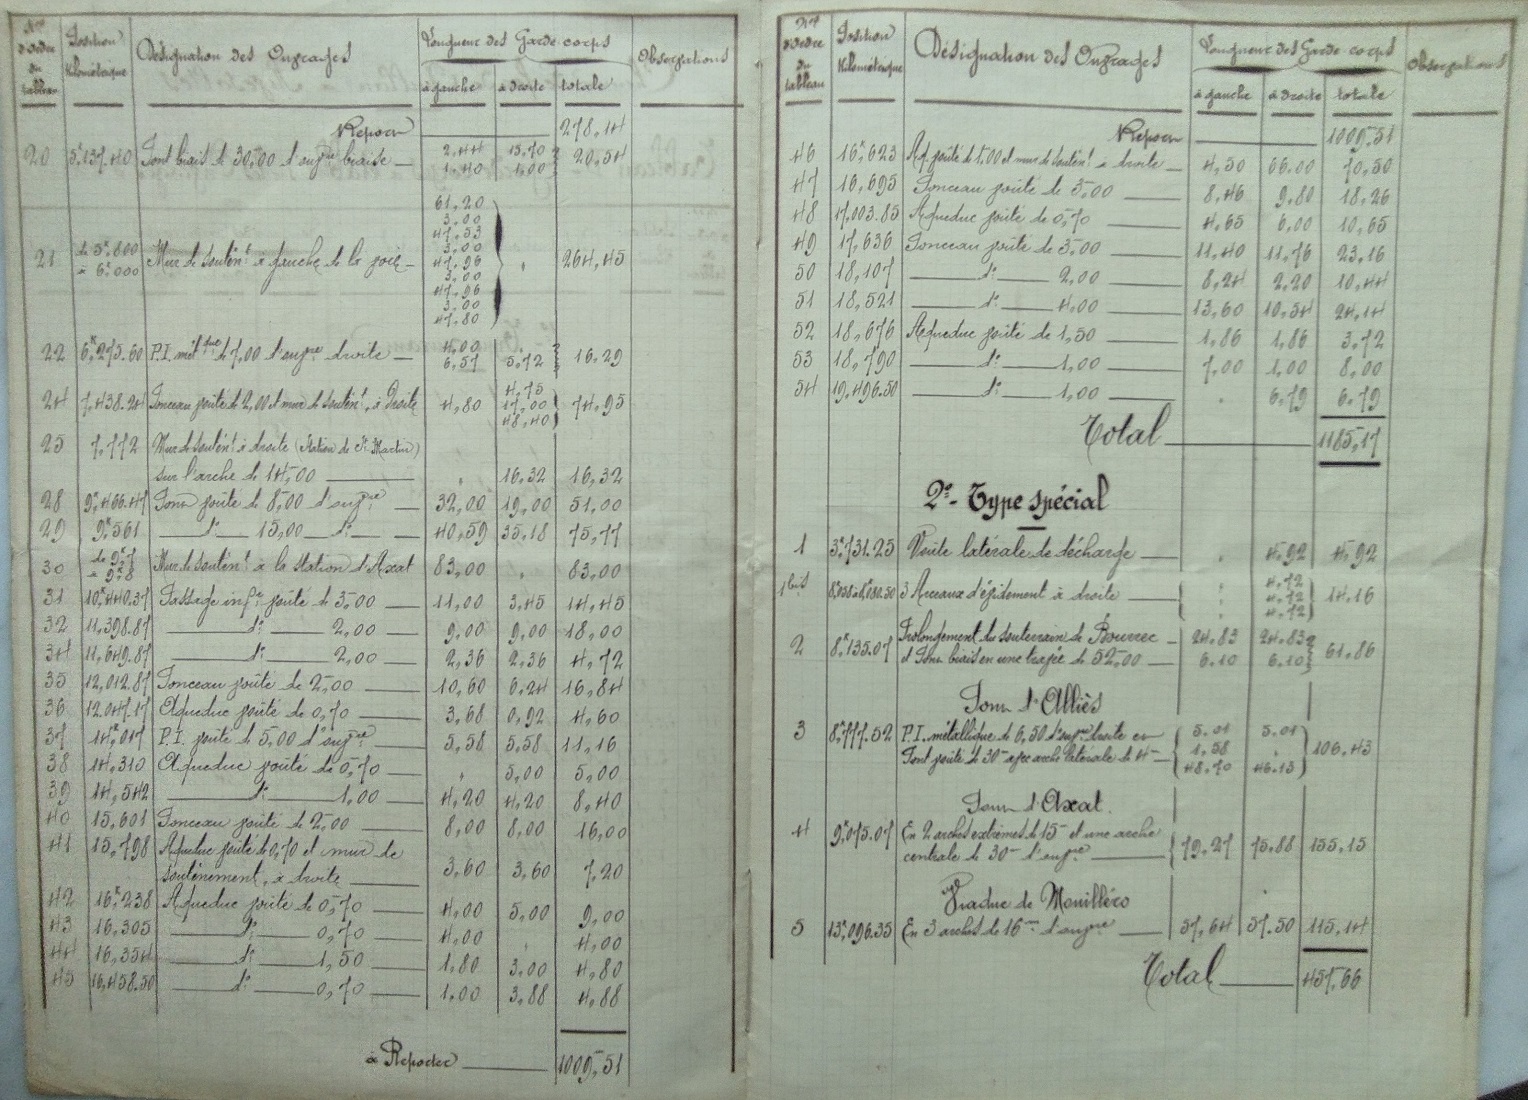 Nos d'Ordre du tableau | Position Kilométrique | Désignation des Ouvrages | Longueur des Garde-corps | Observations
à gauche | à droite | totale
Report 278,14
20 5k137.40 Pont biais de 30,00 d'ouvre biaise 2,44 15,70 20,54
1,40 1,00
21 de 5k.800 à 6k.000 Mur de soutént à gauche de la voie 264,45
61,20
3,00
47,53
3,00
47,96
3,00
47,96
3,00
47,80
22 6k,275.60 P.I. métque de 7,00 d'ouvre droite 4,00 16,29
6,57 5,72
24 7,438.24 Ponceau voûté de 2,00 et mur de soutént, à droite 4,80 74,95
4,75
17,00
48,40
25 7,772 Mur de soutént à droite (Station de St Martin)
sur l'arche de 14,00 " 16,32 16,32
28 9k,466.47 Pont voûté de 8,00 d'ouvre 32,00 19,00 51,00
29 9k561 d° 15,00 d° 40,59 35,18 75,77
30 de 9k7 à 9k8 Mur de soutént à la station d'Axat 83,00 " 83,00
31 10k,440.37 Passage infr voûté de 3,00 11,00 3,45 14,45
32 11,398.87 d° 2,00 9,00 9,00 18,00
34 11,649.87 d° 2,00 2,36 2,36 4,72
35 12,012.87 Ponceau voûté de 2,00 10,60 6,24 16,84
36 12.047.17 Aqueduc voûté de 0,70 3,68 0,92 4,60
37 14k,017 P.I. voûté de 5,00 d'ouvre 5,58 5,58 11,16
38 14,310 Aqueduc voûté de 0,70 " 5,00 5,00
39 14,542 d° 1,00 4,20 4,20 8,40
40 15,601 Ponceau voûté de 2,00 8,00 8,00 16,00
41 15,798 Aqueduc voûté de 0,70 et mur de
soutènement, à droite 3,60 3,60 7,20
42 16k,238 Aqueduc voûté de 0,70 4,00 5,00 9,00
43 16,305 d° 0,70 4,00 " 4,00
44 16,354 d° 1,50 1,80 3,00 4,80
45 16,458.50 d° 0,70 1,00 3,88 4,88
à Reporter 1009,51
Nos d'Ordre du tableau | Position Kilométrique | Désignation des Ouvrages | Longueur des Garde-corps | Observations
à gauche | à droite | totale
Report 1009,51
46 16k,623 Aq. voûté de 1,00 et mur de soutént à droite 4,50 66,00 70,50
47 16,695 Ponceau voûté de 3,00 8,46 9,80 18,26
48 17,003.85 Aqueduc voûté de 0,70 4,65 6,00 10,65
49 17,636 Ponceau voûté de 3,00 11,40 11,76 23,16
50 18,107 d° 2,00 8,24 2,20 10,44
51 18,521 d° 4,00 13,60 10,54 24,14
52 18,676 Aqueduc voûté de 1,50 1,86 1,86 3,72
53 18,790 d° 1,00 7,00 1,00 8,00
54 19,496.50 d° 1,00 " 6,79 6,79
Total 1185,17
2° - Type spécial
1 3k,731.25 Voûte latérale de décharge " 4,92 4,92
1bis 8,058 à 8,080.50 3 Arceaux d'évidement à droite 14,16
" 4,72
" 4,72
" 4,72
2 8k,135.07 Prolongement du souterrain de Bourrec 24,83 24,83 61,86
et Pont biais en une travée de 52,00 6,10 6,10
Pont d'Alliès
3 8k,777.52 P.I. métallique de 6,50 d'ouvre droite et 5,01 5,01 106,43
Pont voûté de 30m avec arche latérale de 4m 1,58 "
48,70 46,13
Pont d'Axat.
4 9k,075.07 En 2 arches extrêmes de 15m et une arche
centrale de 30m d'ouvre 79,27 75,88 155,15
Viaduc de Mouilléro
5 13k,096.35 En 3 arches de 16m d'ouvre 57,64 57,50 115,14
Total 457,66